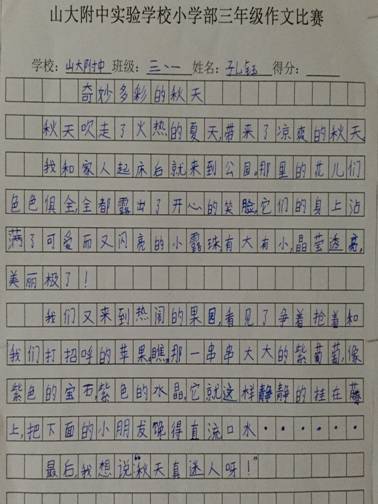 山大附中实验学校小学部三年级作文比赛
学校：山大附中 班级：三、一 姓名：孔钰 得分：
奇妙多彩的秋天
秋天吹走了火热的夏天,带来了凉爽的秋天,
我和家人起床后就来到公园,那里的花儿们
色色俱全,全都露出了开心的笑脸,它们的身上沾
满了可爱而又闪亮的小露珠有大有小,晶莹透亮,
美丽极了!
我们又来到热闹的果园,看见了争着抢着和
我们打招呼的苹果,瞧,那一串串大大的紫葡萄,像
紫色的宝石,紫色的水晶,它就这样静静的挂在藤
上,把下面的小朋友馋得直流口水······
最后,我想说“秋天真迷人呀!”